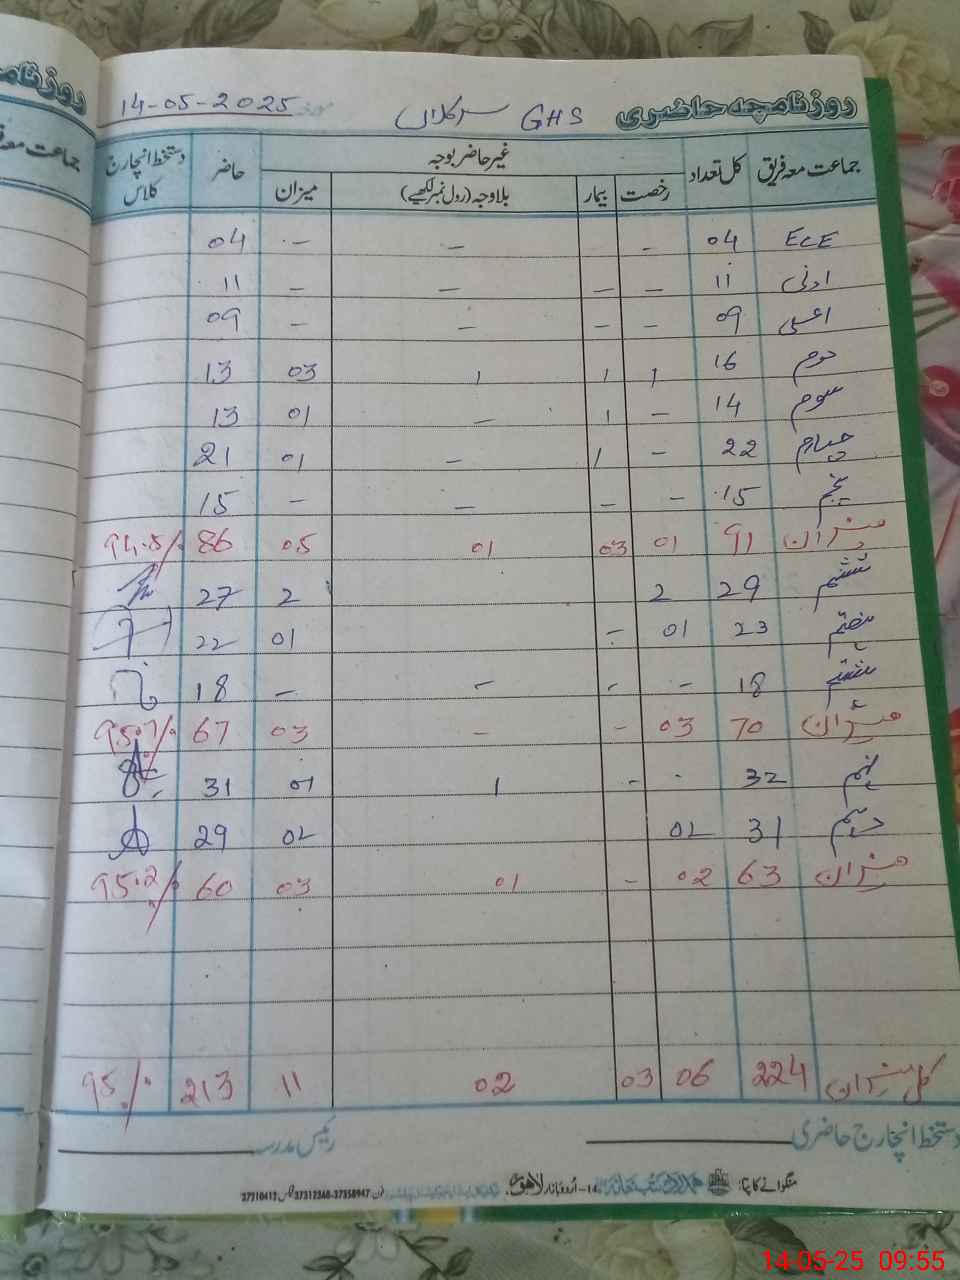 روزنامچہ حاضری GHS سرکلاں مورخہ 14-05-2025
جماعت معہ فریق کل تعداد غیر حاضر بوجہ حاضر دستخط انچارج کلاس
رخصت بیمار بلاوجہ (رول نمبر لکھیے) میزان
ECE 04 - - - 04
ادنیٰ 11 - - - - 11
اعلیٰ 09 - - - - 09
دوم 16 1 1 1 03 13
سوم 14 - 1 - 01 13
چہارم 22 - 1 - 01 21
پنجم 15 - - - - 15
میزان 91 01 03 01 05 86 94.5%
ششم 29 2 2 27
ہفتم 23 01 - 01 22
ہشتم 18 - - - - 18
میزان 70 03 - - 03 67 95.7%
نہم 32 - - 1 01 31
دہم 31 02 02 29
میزان 63 02 - 01 03 60 95.2%
کل میزان 224 06 03 02 11 213 95%
دستخط انچارج حاضری رئیس مدرسہ
منگوانے کا پتہ: 14-اُردو بازار لاہور۔ فون 37312368-37358947 فیکس 37310412
روزنامچہ
جماعت معہ فریق
14-05-25 09:55